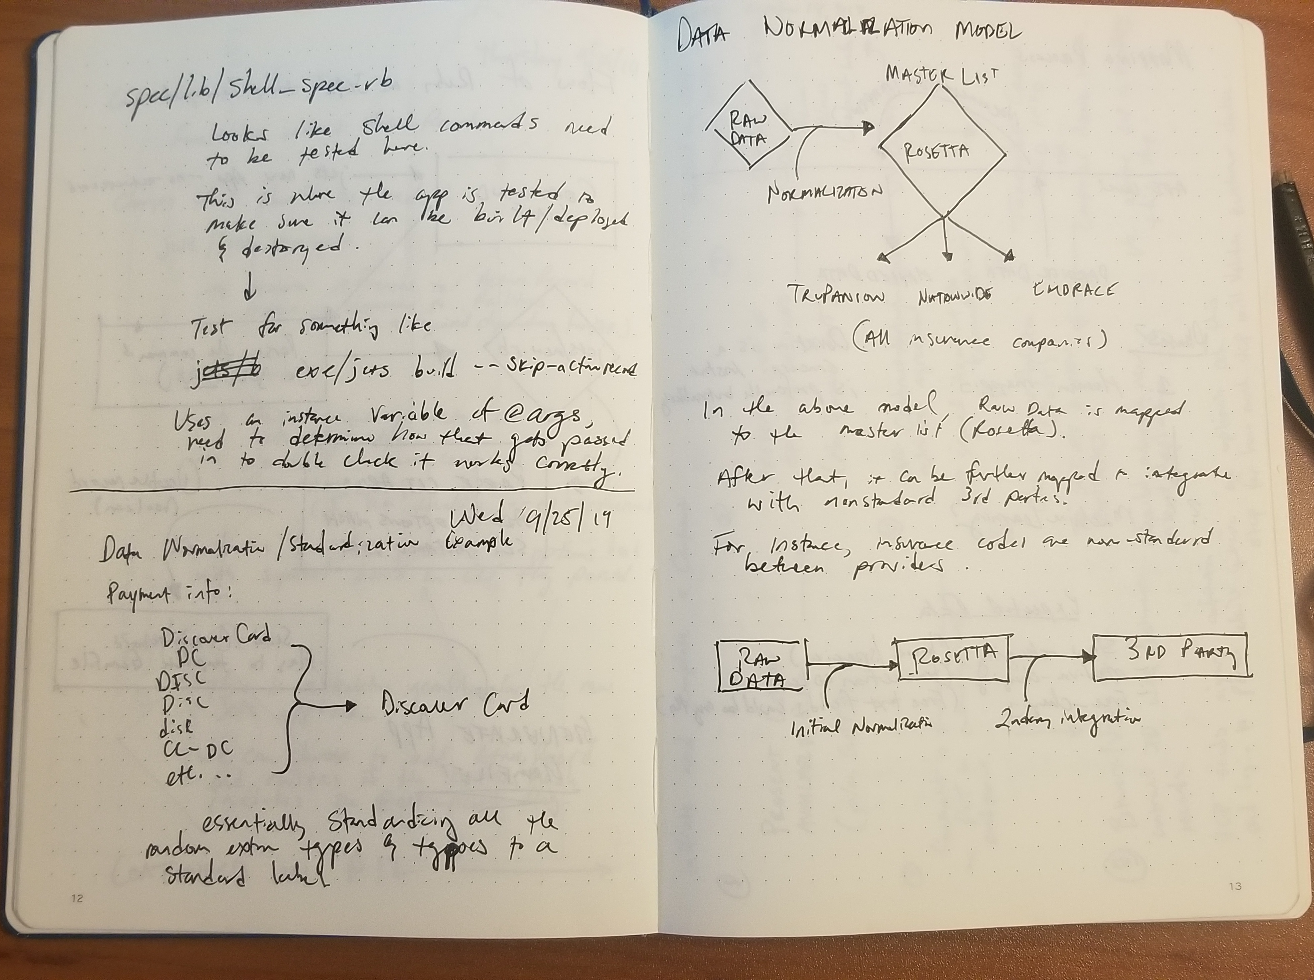 spec/lib/shell_spec.rb
Looks like shell commands need
to be tested here.
This is where the app is tested to
make sure it can be built/deployed
& destoryed.
Test for something like
exe/jets build --skip-activerecord
Uses an instance variable of @args,
need to determine how that gets passed
in to double check it works correctly.
Wed 9/25/19
Data Normalization/Standardization Example
Payment info:
Discover Card
DC
DISC
Disc
disk
CC-DC
etc. ...
Discover Card
essentially standardizing all the
random extra types & typoes to a
standard label
12
DATA NORMALIZATION MODEL
MASTER LIST
RAW
DATA
ROSETTA
NORMALIZATION
TRUPANION NATIONWIDE EMBRACE
(All insurance companies)
In the above model, Raw Data is mapped
to the master list (Rosetta).
After that, it can be further mapped to integrate
with nonstandard 3rd parties.
For instance, insurance codes are non-standard
between providers.
RAW
DATA
ROSETTA
3RD PARTY
Initial Normalization
2ndary integration
13